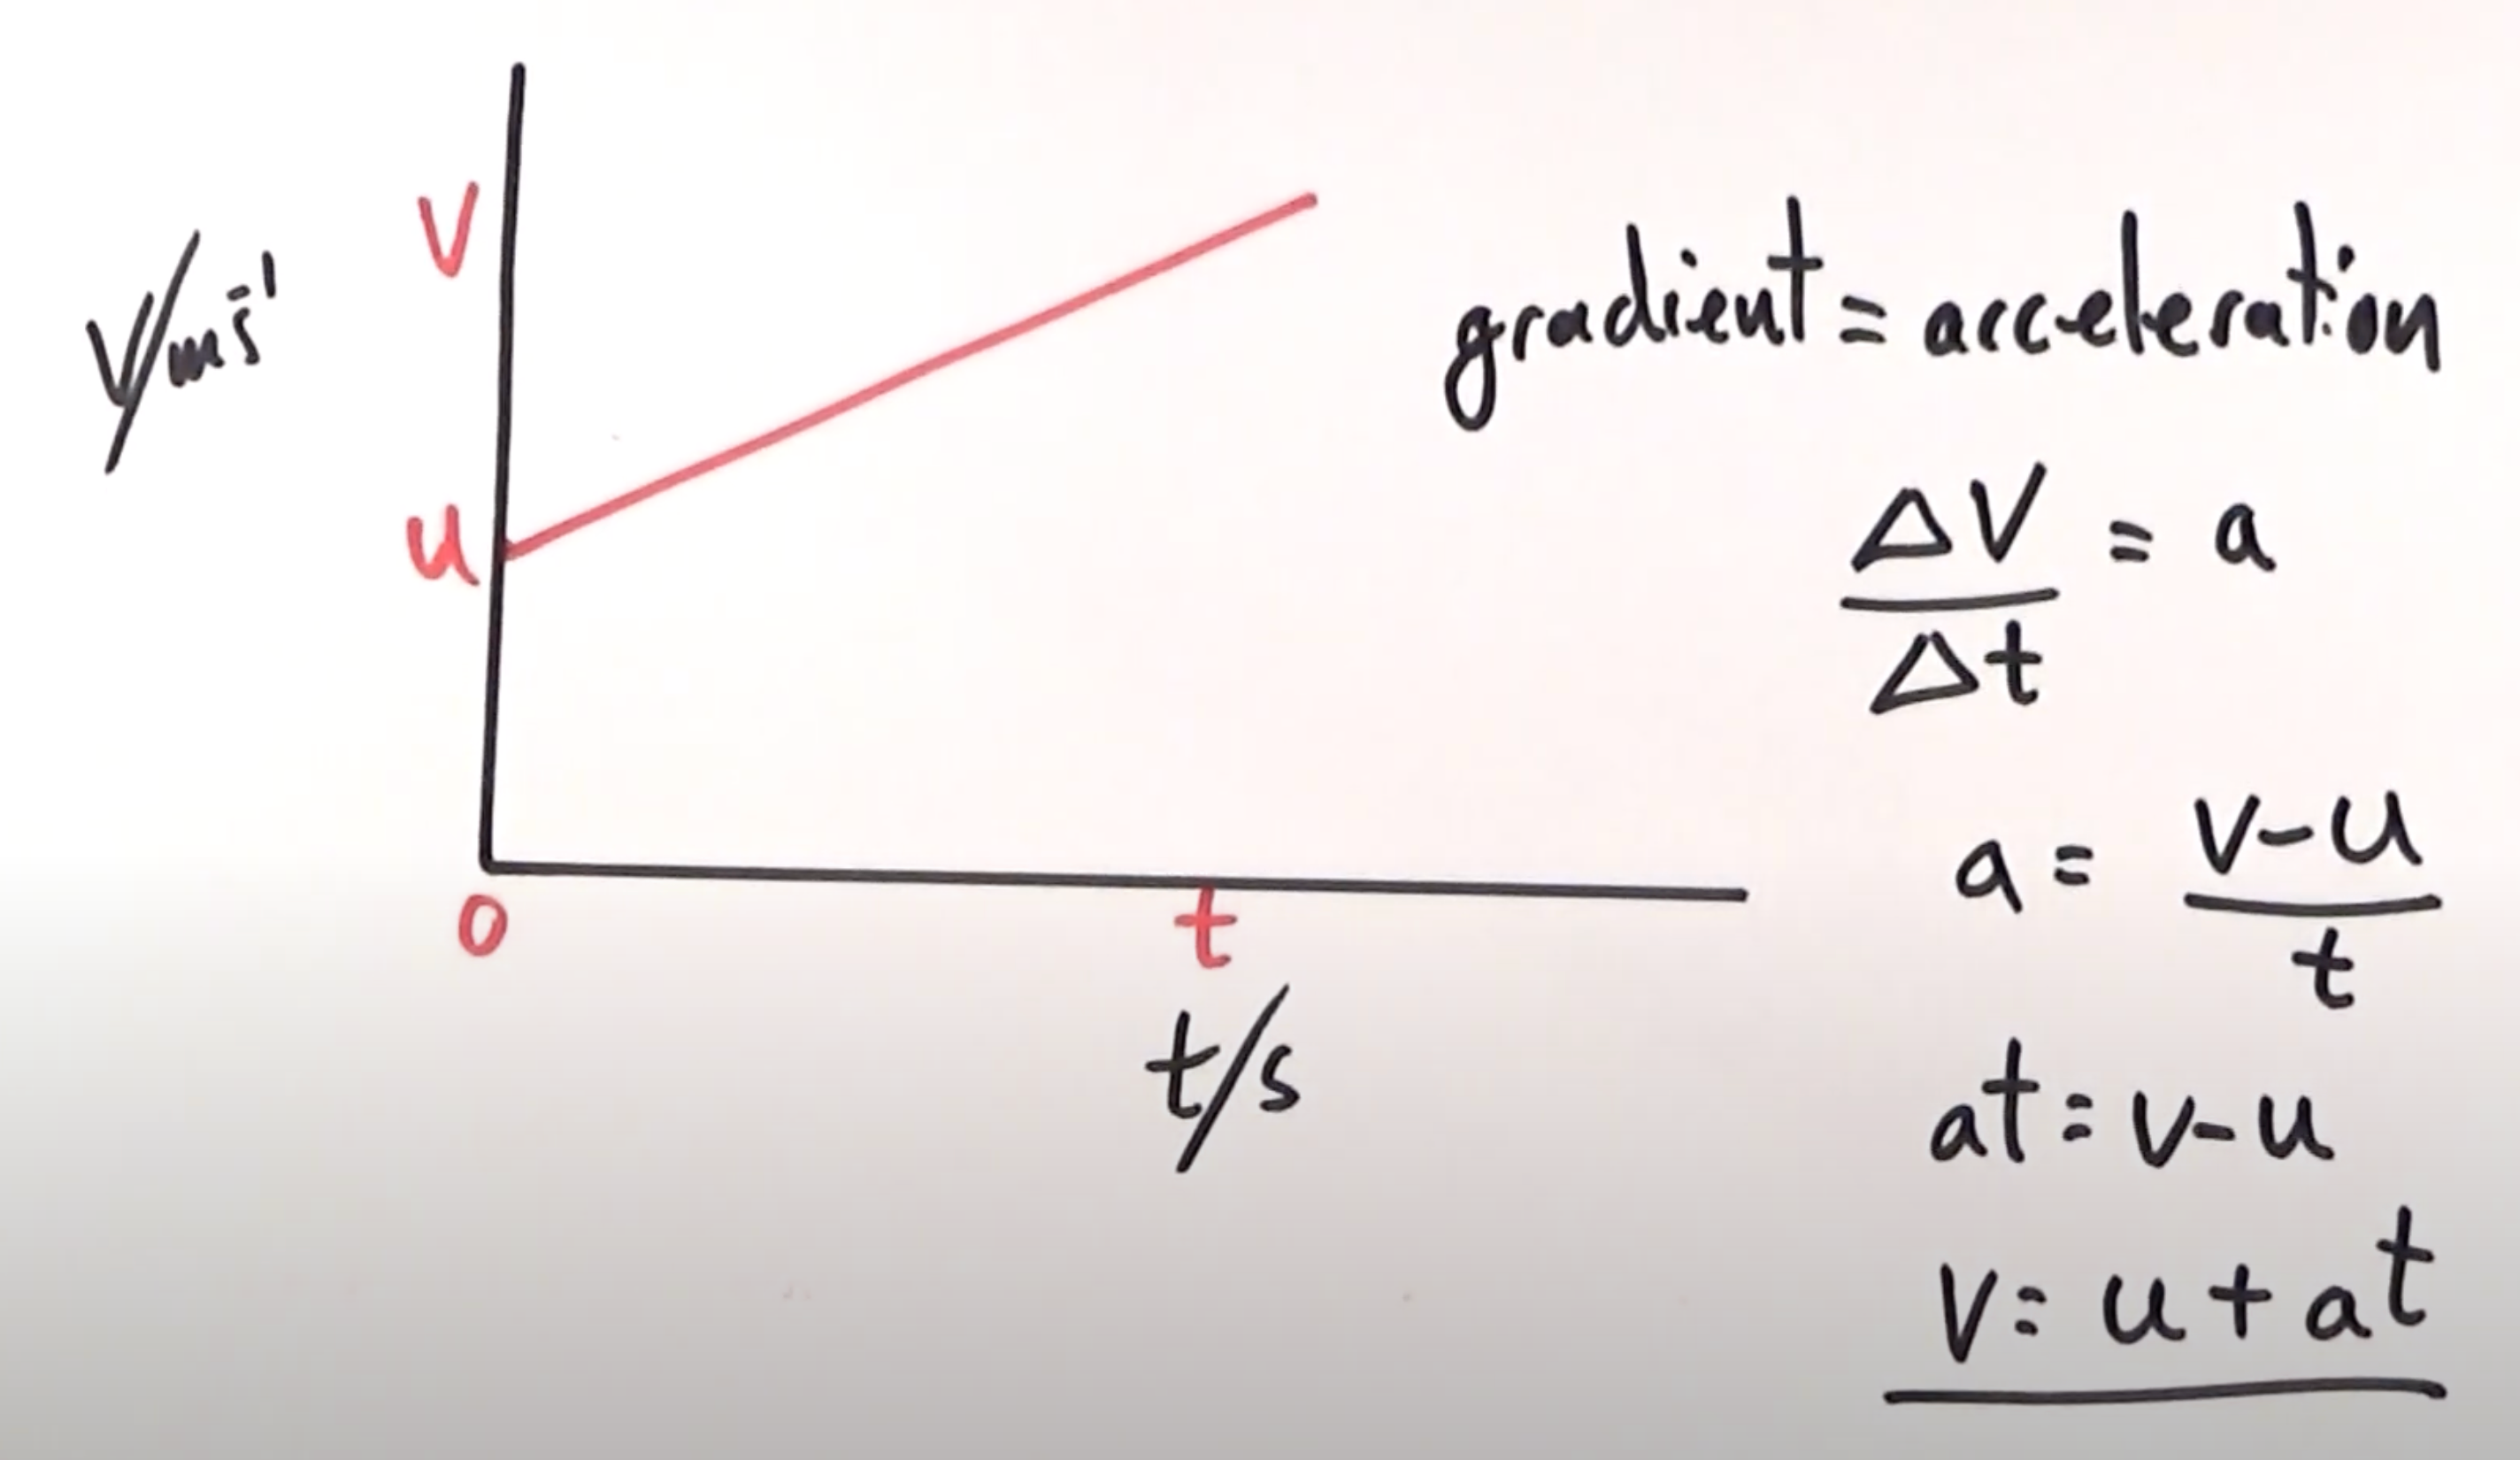 V
V/ms⁻¹
u
0
t
t/s
gradient = acceleration
ΔV/Δt = a
a = v-u/t
at = v-u
v = u + at